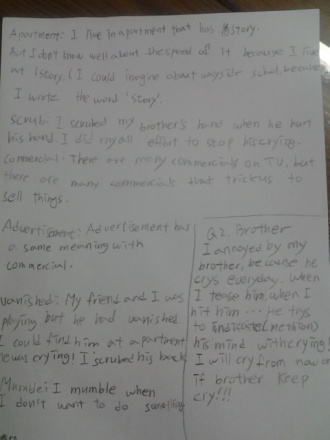 Apartment: I live in apartment that has 8 story.
But I don't know well about the speed of it because I live
at 1 story. (I could imagine about wayside school, because
I wrote the word 'story'.
Scrub: I scrubed my brother's hand when he hurt
his hand. I did my all effort to stop his crying.
Commercial: There are many commercials on TV, but
there are many commercials that trick us to
sell things.
Advertisement: Advertisement has
a same meaning with
commercial.
Vanished: My friend and I was
playing but he had vanished.
I could find him at apartment
news crying! I scrubed his back
Mumble: I mumble when
I don't want to do something
Q2. Brother
I annoyed by my
brother, because he
crys everyday. When
I tease him, when I
hit him ... He trys
to indicated
his mind with crying!
I will cry from now on
if brother keep
cry!!!